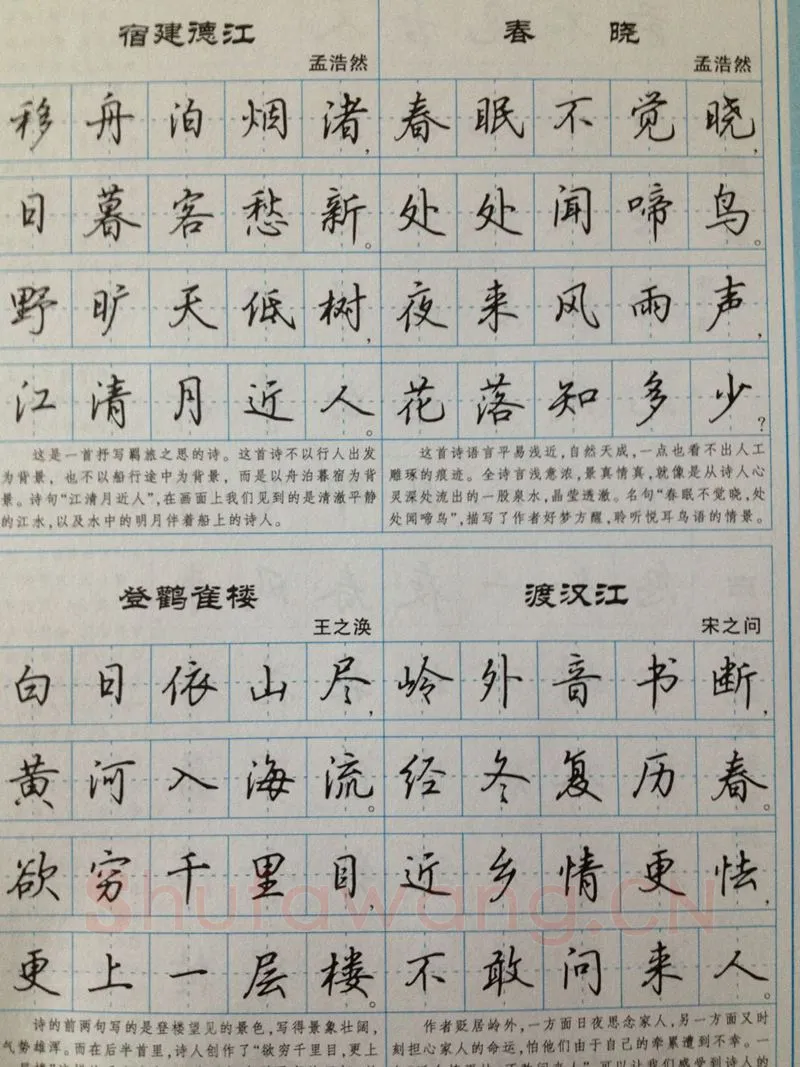 宿建德江
孟浩然
移舟泊烟渚，
日暮客愁新。
野旷天低树，
江清月近人。
这是一首抒写羁旅之思的诗。这首诗不以行人出发
为背景，也不以船行途中为背景，而是以舟泊暮宿为背
景。诗句“江清月近人”，在画面上我们见到的是清澈平静
的江水，以及水中的明月伴着船上的诗人。
春晓
孟浩然
春眠不觉晓，
处处闻啼鸟。
夜来风雨声，
花落知多少？
这首诗语言平易浅近，自然天成，一点也看不出人工
雕琢的痕迹。全诗言浅意浓，景真情真，就像是从诗人心
灵深处流出的一股泉水，晶莹透澈。名句“春眠不觉晓，处
处闻啼鸟”，描写了作者好梦方醒，聆听悦耳鸟语的情景。
登鹳雀楼
王之涣
白日依山尽，
黄河入海流。
欲穷千里目，
更上一层楼。
诗的前两句写的是登楼望见的景色，写得景象壮阔，
气势雄浑。而在后半首里，诗人创作了“欲穷千里目，更上
渡汉江
宋之问
岭外音书断，
经冬复历春。
近乡情更怯，
不敢问来人。
作者贬居岭外，一方面日夜思念家人，另一方面又时
刻担心家人的命运，怕他们由于自己的牵累遭到不幸。一
Shufawang.CN